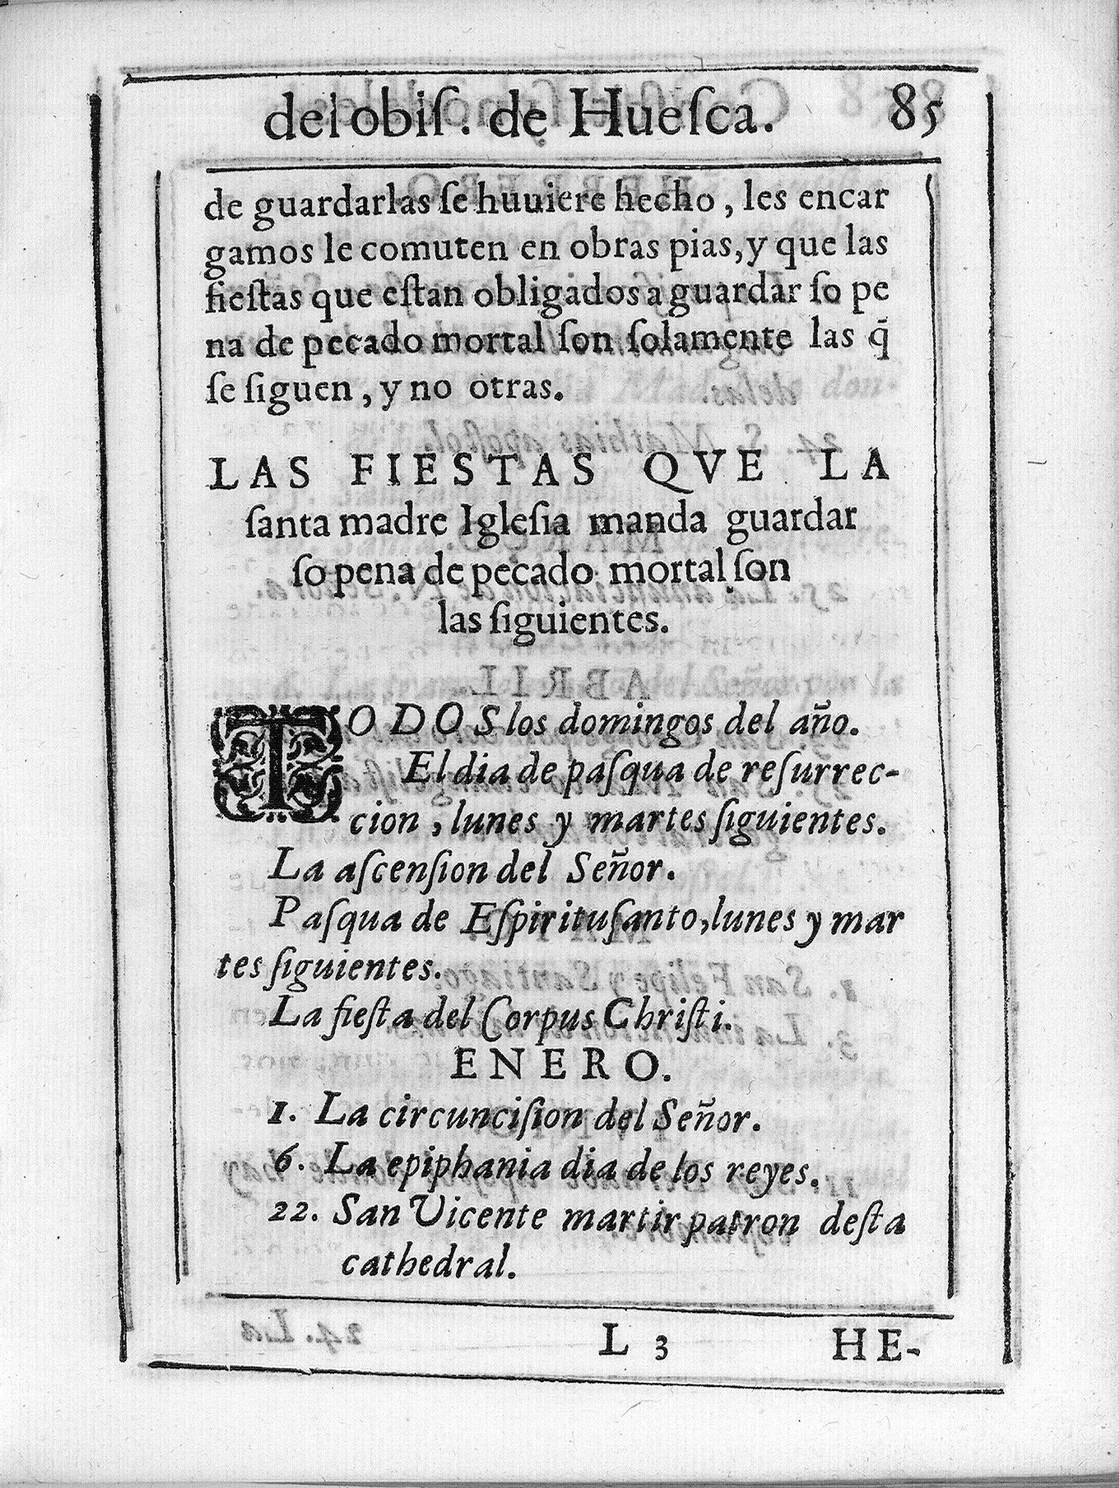 del obiſ. de Hueſca. 85
de guardarlas ſe huuiere hecho, les encar
gamos le comuten en obras pias, y que las
fieſtas que eſtan obligados a guardar ſo pe
na de pecado mortal ſon ſolamente las q̄
ſe ſiguen, y no otras.
LAS FIESTAS QVE LA
ſanta madre Igleſia manda guardar
ſo pena de pecado mortal ſon
las ſiguientes.
TODOS los domingos del año.
El dia de paſqua de reſurrec-
cion, lunes y martes ſiguientes.
La aſcenſion del Señor.
Paſqua de Eſpirituſanto, lunes y mar
tes ſiguientes.
La fieſta del Corpus Chriſti.
ENERO.
1. La circunciſion del Señor.
6. La epiphania dia de los reyes.
22. San Vicente martir patron deſta
cathedral.
L 3 HE-